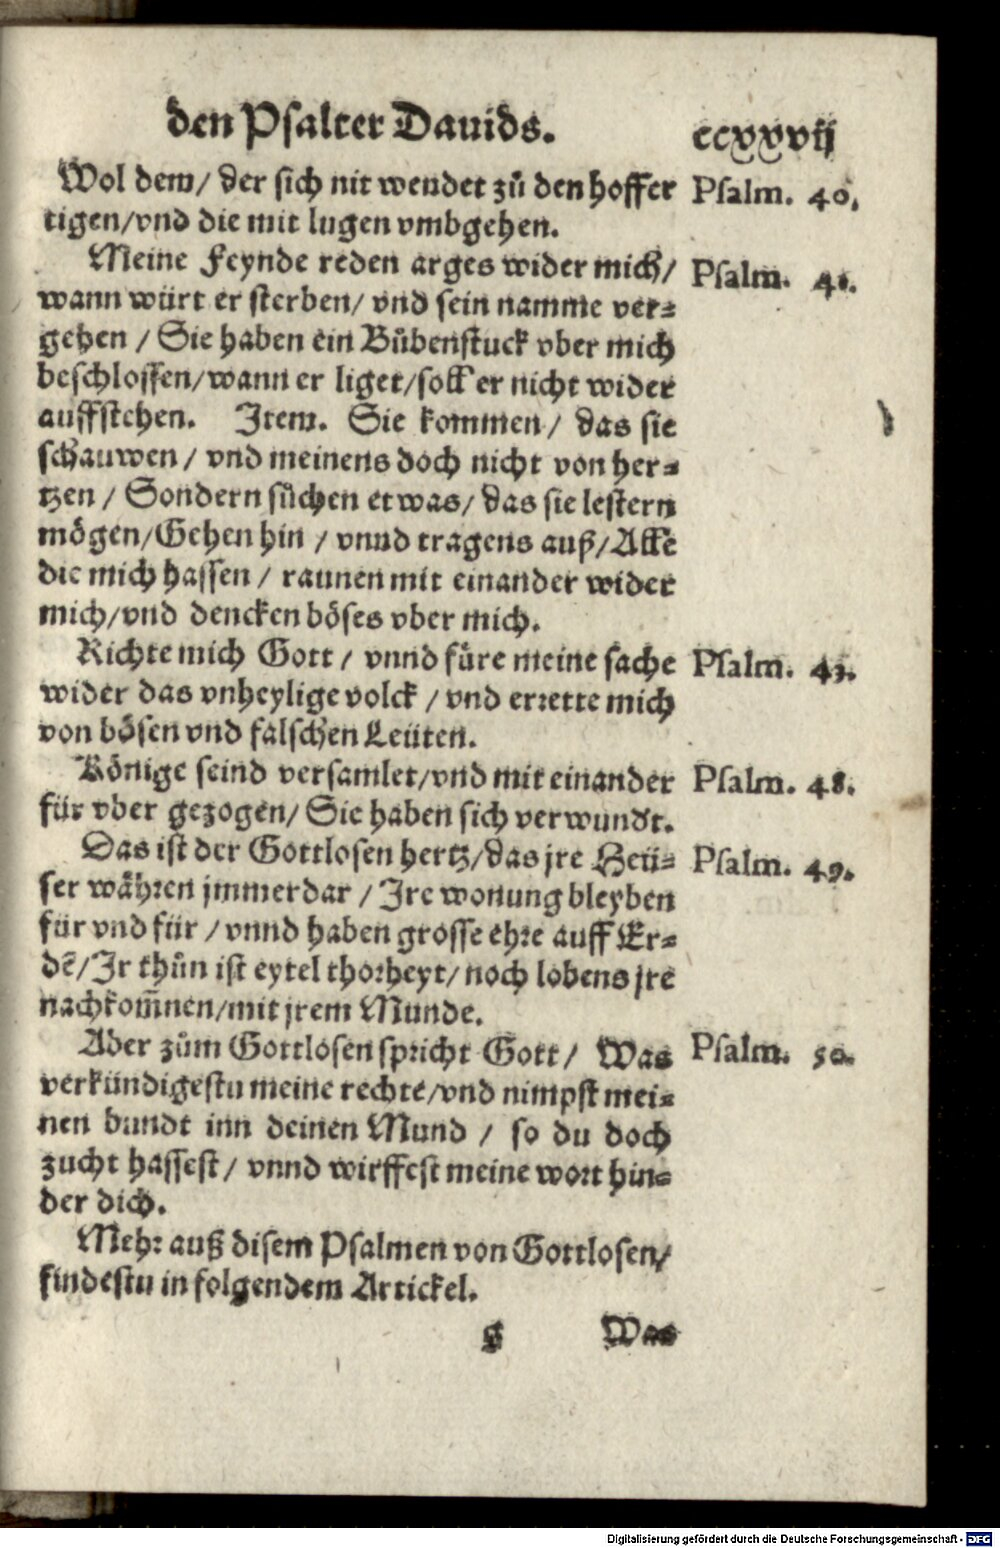 den Psalter Dauids. ccxxvij
Wol dem/ der sich nit wendet zů den hoffer
tigen/vnd die mit lugen vmbgehen.
Psalm. 40.
Meine Feynde reden arges wider mich/
Psalm. 41.
wann würt er sterben/ vnd sein namme ver=
gehen / Sie haben ein Bůbenstuck vber mich
beschlossen/wann er liget/soll er nicht wider
auffstehen. Item. Sie kommen / das sie
schauwen / vnd meinens doch nicht von her=
tzen / Sondern sůchen etwas/ das sie lestern
mögen/Gehen hin / vnnd tragens auß/Alle
die mich hassen / raunen mit einander wider
mich/vnd dencken böses vber mich.
Richte mich Gott / vnnd füre meine sache
Psalm. 43.
wider das vnheylige volck / vnd errette mich
von bösen vnd falschen Leüten.
Könige seind versamlet/vnd mit einander
Psalm. 48.
für vber gezogen/ Sie haben sich verwundt.
Das ist der Gottlosen hertz/das jre Heü=
Psalm. 49.
ser währen jmmerdar / Ire wonung bleyben
für vnd für / vnnd haben grosse ehre auff Er=
dē/Ir thůn ist eytel thorheyt/ noch lobens jre
nachkom̄nen/mit jrem Munde.
Aber zům Gottlosen spricht Gott / Was
Psalm. 50.
verkündigestu meine rechte/vnd nimpst mei=
nen bundt inn deinen Mund / so du doch
zucht hassest / vnnd wirffest meine wort hin=
der dich.
Mehr auß disem Psalmen von Gottlosen/
findestu in folgendem Artickel.
g Was
Digitalisierung gefördert durch die Deutsche Forschungsgemeinschaft - DFG